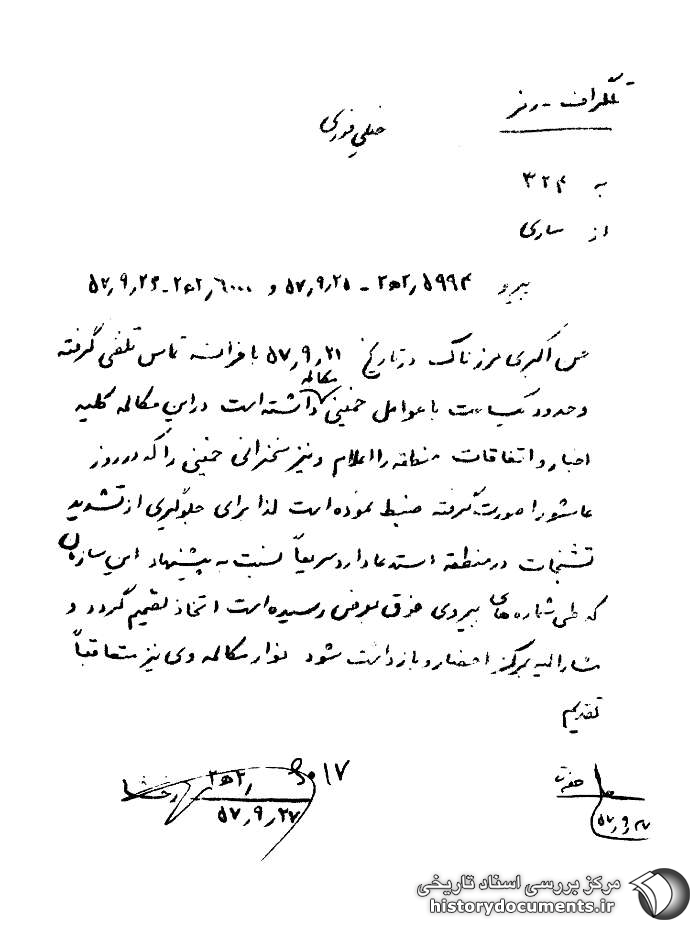 تلگراف - رمز
خیلی فوری
به ۳۲۴
از ساری
پیرو ۵۹۹۴/۲ه۲ - ۵۷/۹/۲۵ و ۶۰۰۰/۲ه۲ - ۵۷/۹/۲۶
علی اکبری مرزناک در تاریخ ۵۷/۹/۲۱ با فرانسه تماس تلفنی گرفته
و حدود یکساعت با عوامل خمینی مکالمه داشته است در این مکالمه کلیه
اخبار و اتفاقات منطقه را اعلام و نیز سخنرانی خمینی را که در روز
عاشورا صورت گرفته ضبط نموده است لذا برای جلوگیری از تشدید
تشنجات در منطقه استدعا دارد سریعاً نسبت به پیشنهاد این سازمان
که طی شماره های پیروی فوق بعرض رسیده است اتخاذ تصمیم گردد و
مشارالیه بمرکز احضار و بازداشت شود نوار مکالمه وی نیز متعاقباً
تقدیم
۲ه۲/
۵۷/۹/۲۷
۵۷/۹/۲۷
مرکز بررسی اسناد تاریخی
historydocuments.ir